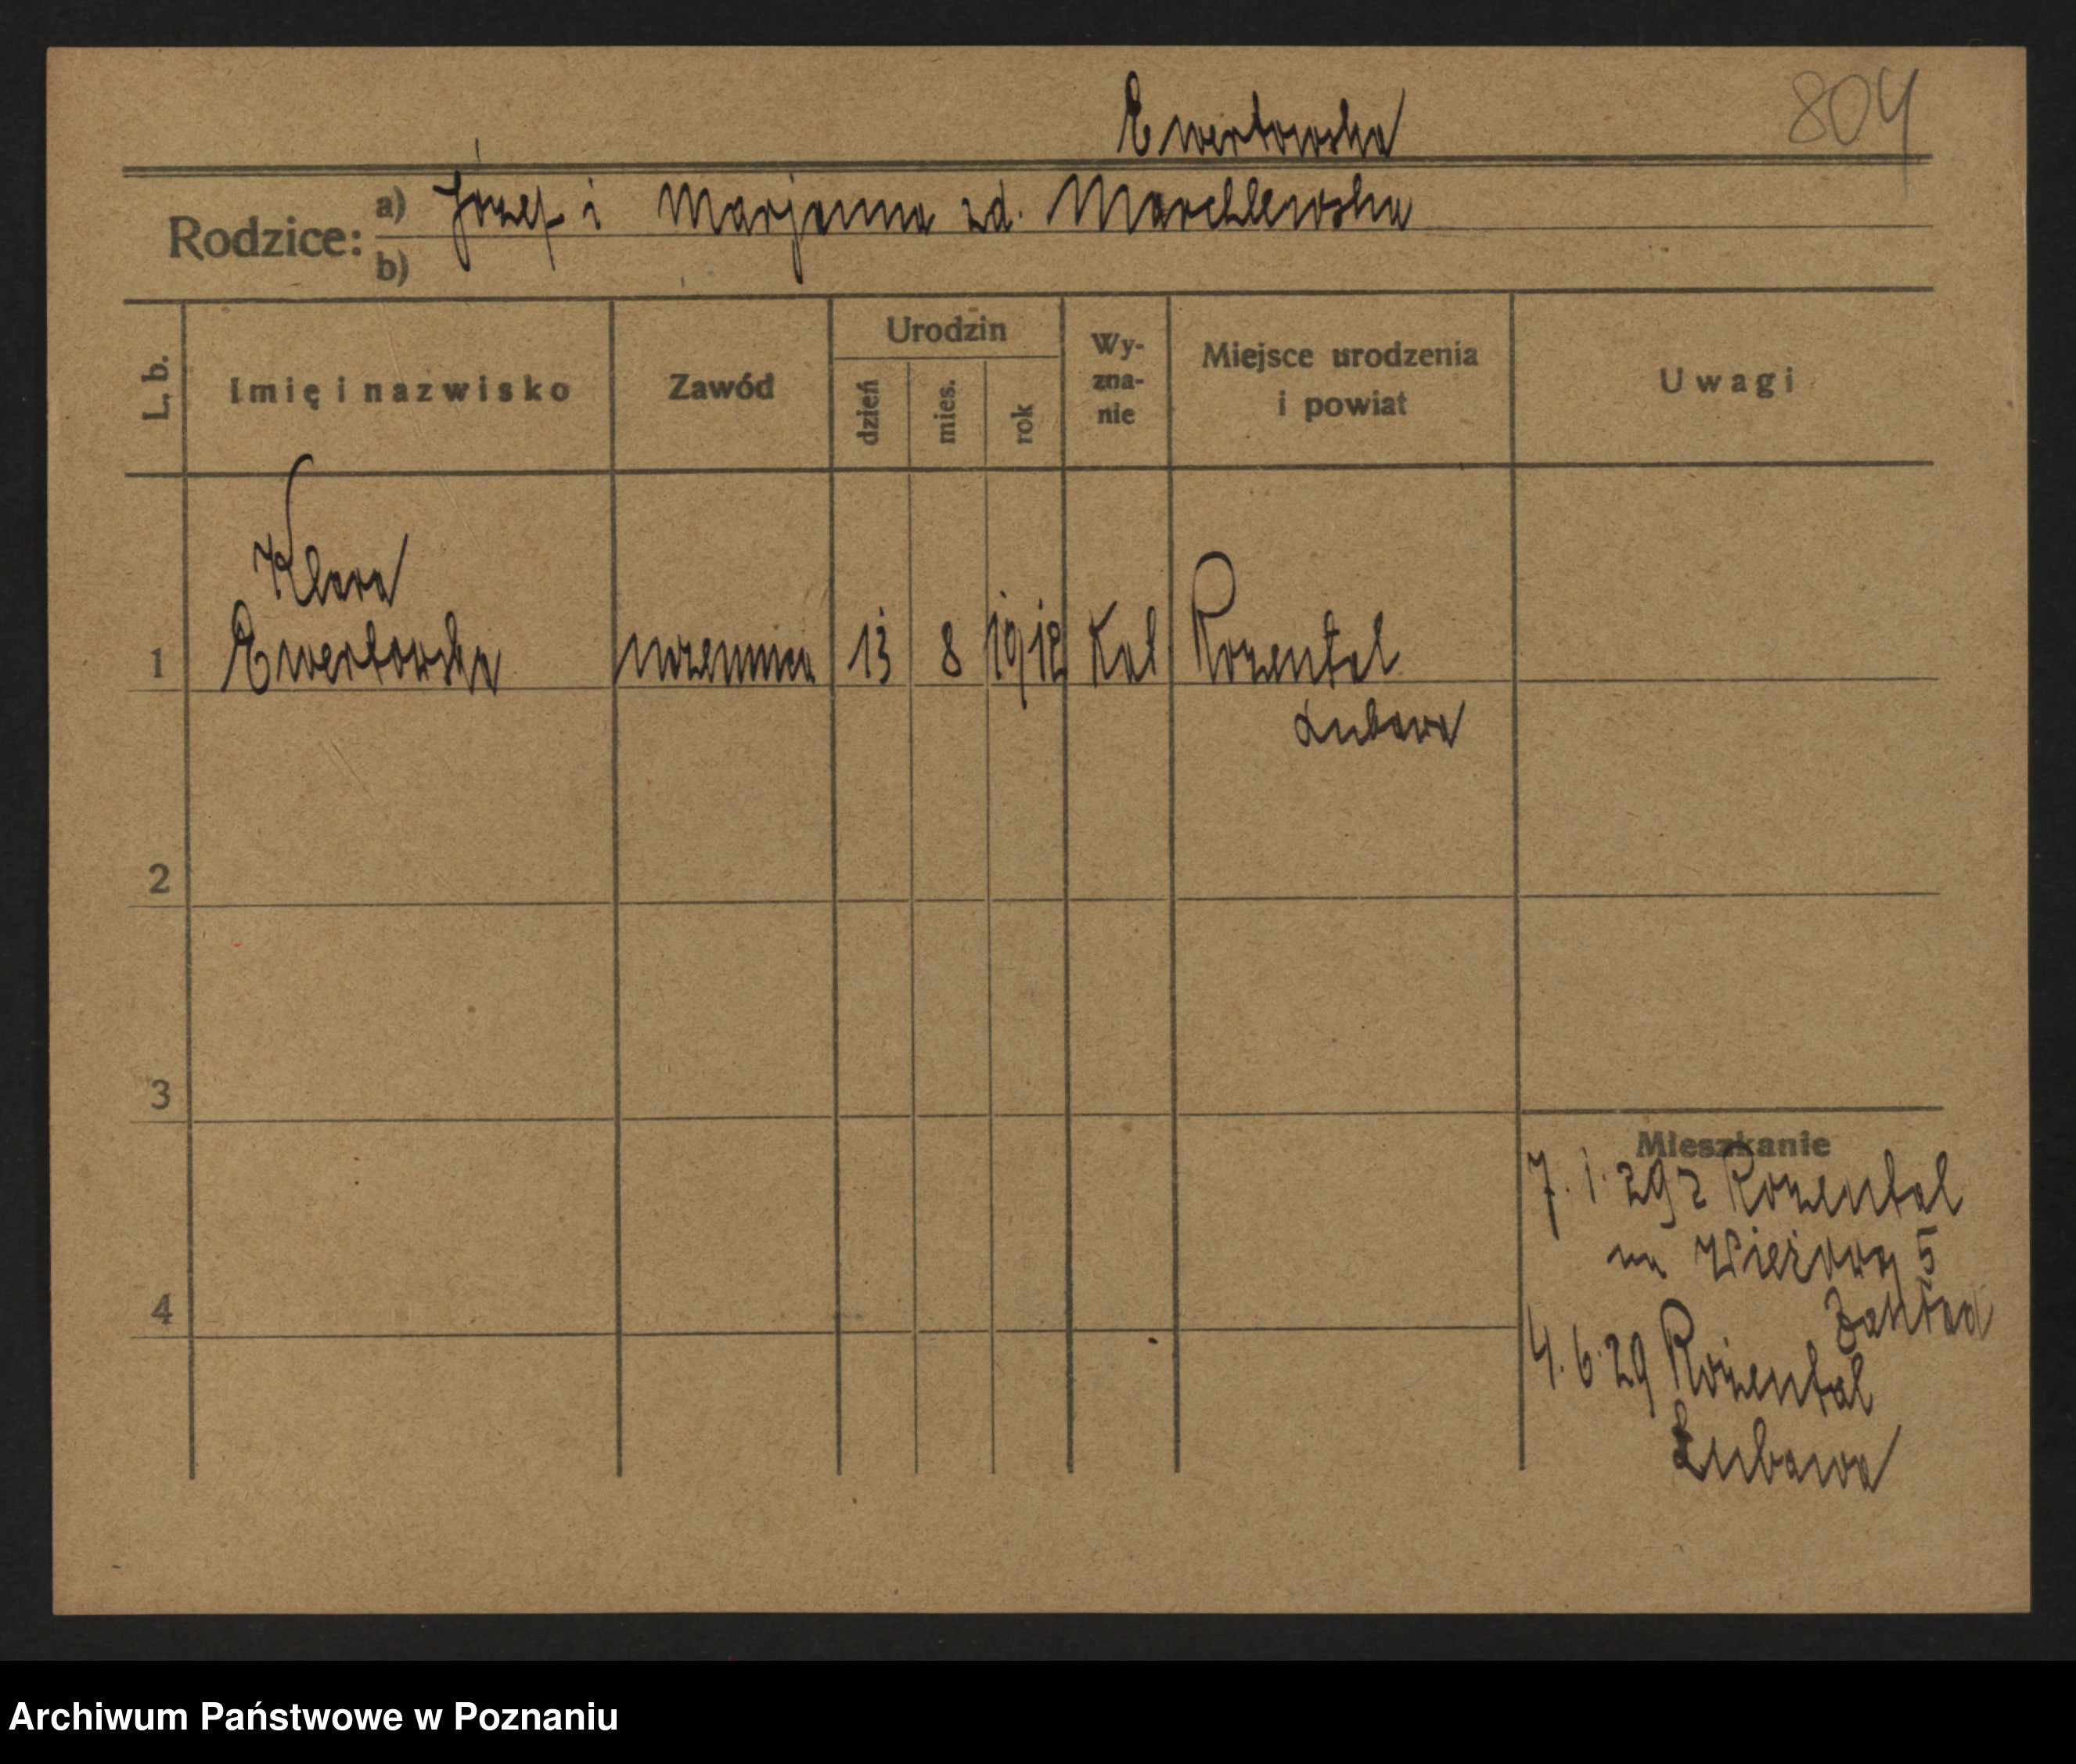 804
Ewertowska
Rodzice: a) Józef i Marjanna zd. Marchlewska
b)
L. b.
Imię i nazwisko
Zawód
Urodzin
dzień
mies.
rok
Wy-
zna-
nie
Miejsce urodzenia
i powiat
Uwagi
Klara
1 Ewertowska uczennica 13 8 1912 Kat Rozental
Lubawa
2
3
Mieszkanie
7. 1. 29 z Rozental
na Wieżową 5
Zakład
4
4. 6. 29 Rozental
Lubawa
Archiwum Państwowe w Poznaniu